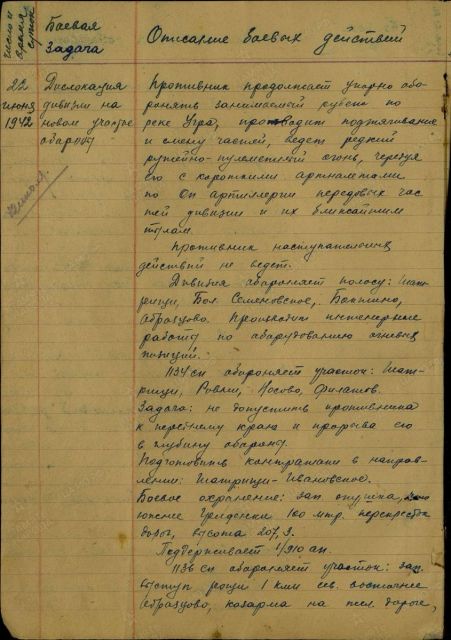 число и время суток
Боевая Задача
Описание боевых действий
22 июня 1942
Дислокация дивизии на новом участке обороны
Противник продолжает упорно обо-
ронять занимаемый рубеж по
реке Угра, производит подтягивание
и смену частей, ведет редкий
ружейно-пулеметный огонь, чередуя
его с короткими артналетами
по ОП артиллерии передовых час
тей дивизии и их ближайшим
тылам.
Противник наступательных
действий не ведет.
Дивизия обороняет полосу: Шат-
рищи, Бол. Семеновское,
Образцово. Производит инженерные
работы по оборудованию огневых
позиций.
1134 сп обороняет участок: Шат-
рищи, Носово, Филатов.
Задача: не допустить противника
к переднему краю и прорыва его
в глубину обороны.
Подготовить контратаки в направ-
лении: Шатрищи - Ивановское.
Боевое охранение: зап. опушка,
южнее Гриденки 100 мтр. перекресток
дорог, высота 207,3.
Поддерживает 1/910 ап.
1136 сп обороняет участок: зап.
выступ рощи 1 клм сев. восточнее
Образцово, казарма на жел. дороге,